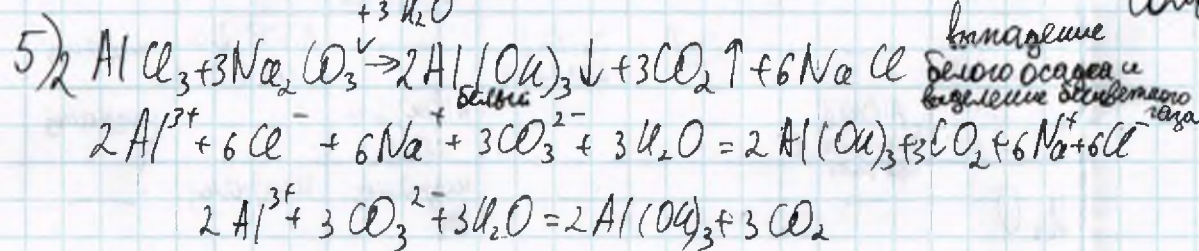 +3 H₂O
5) 2 AlCl₃ + 3Na₂CO₃ → 2Al(OH)₃↓ + 3CO₂↑ + 6NaCl
белый
выпадение
белого осадка и
выделение бесцветного
газа
2Al³⁺ + 6Cl⁻ + 6Na⁺ + 3CO₃²⁻ + 3H₂O = 2Al(OH)₃ + 3CO₂ + 6Na⁺ + 6Cl⁻
2Al³⁺ + 3CO₃²⁻ + 3H₂O = 2Al(OH)₃ + 3CO₂